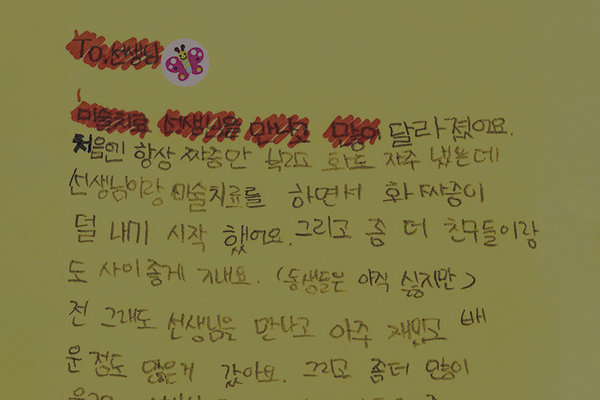 To. 선생님
미술치료 선생님을 만나고 많이 달라졌어요.
처음엔 항상 짜증만 부리고 화도 자주 냈는데
선생님이랑 미술치료를 하면서 화 짜증이
덜 내기 시작 했어요. 그리고 좀 더 친구들이랑
도 사이좋게 지내요. (동생들은 아직 싫지만)
전 그래도 선생님을 만나고 아주 재밌고 배
운 점도 많은거 같아요. 그리고 좀더 많이